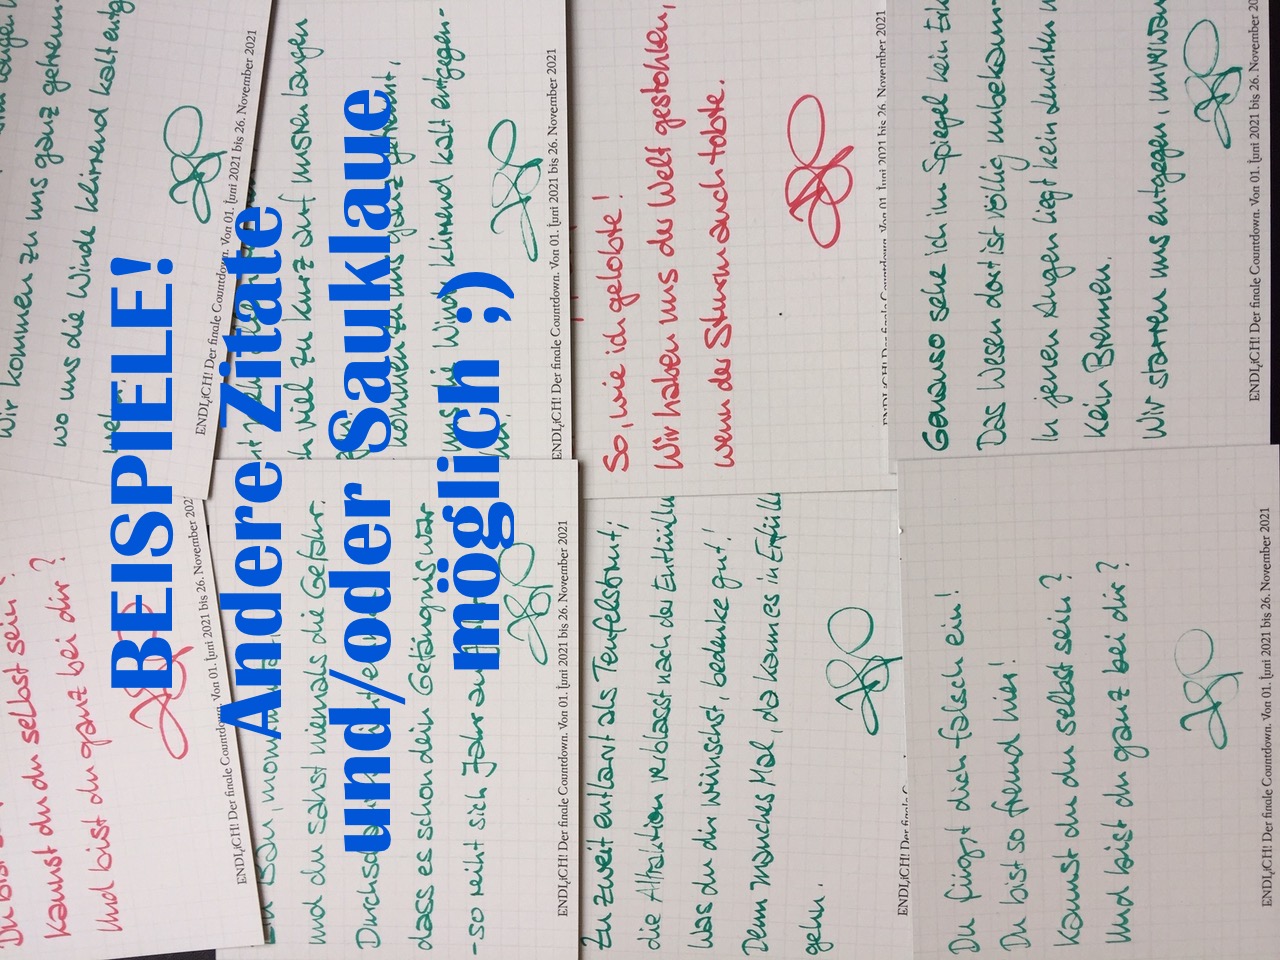 BEISPIELE!
Andere Zitate
und/oder Sauklaue
möglich ;)
Wir kommen zu uns ganz getrennt
wo uns die Winde klirrend kalt
ENDLiCH! Der finale Countdown. Von 01. Juni 2021 bis 26. November 2021
viel zu kurz auf unseren langen
kommen zu uns ganz getrennt,
uns die Winde klirrend kalt entgegen-
ENDLiCH! Der finale Countdown. Von 01. Juni 2021 bis 26. November 2021
So, wie ich gelobte!
Wir haben uns der Welt gestohlen,
wenn der Sturm auch tobte.
ENDLiCH! Der finale Countdown. Von 01. Juni 2021 bis 26. November 2021
Genauso sehe ich im Spiegel kein
Das Wesen dort ist völlig unbekannt
In jenen Augen liegt kein Leuchten
Kein Brennen.
Wir starren uns entgegen, unverwandt
ENDLiCH! Der finale Countdown. Von 01. Juni 2021 bis 26. November 20
Du bist
Kannst du du selbst sein?
Und bist du ganz bei dir?
ENDLiCH! Der finale Countdown. Von 01. Juni 2021 bis 26. November 202
und du sahst niemals die Gefahr.
dass es schon dein Gefängnis war
- so reiht sich Jahr an
ENDLiCH! Der finale Countdown. Von 01. Juni 2021 bis 26. November 2021
Zu zweit entlarvt als Teufelsbrut;
die Attraktion verblasst nach der Enthüllu
Was du dir wünschst, bedenke gut!
Denn manches Mal, da kann es in Erfüll
gehn.
ENDLiCH! Der finale C
Du fügst dich falsch ein!
Du bist so fremd hier!
Kannst du du selbst sein?
Und bist du ganz bei dir?
ENDLiCH! Der finale Countdown. Von 01. Juni 2021 bis 26. November 2021